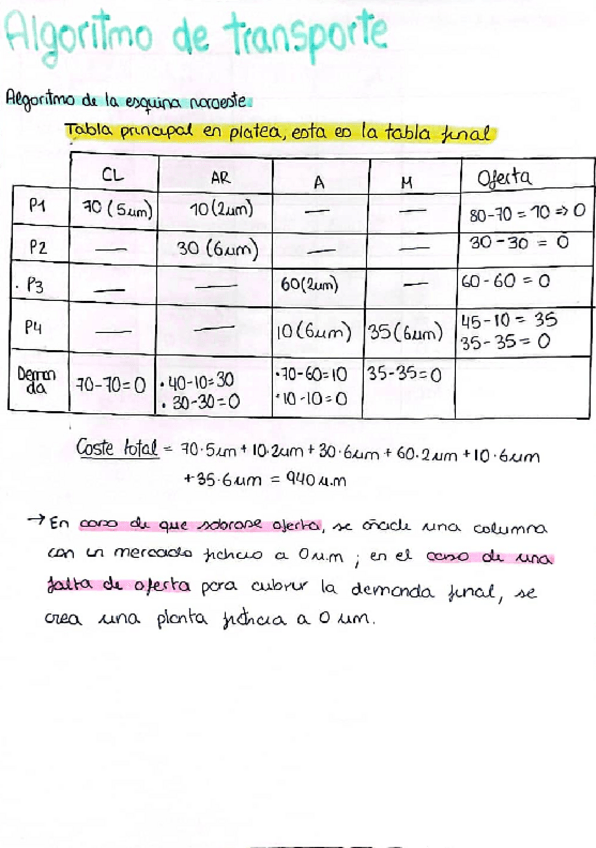 Algoritmo de transporte
Algoritmo de la esquina noroeste.
Tabla principal en platea, esta es la tabla final
CL AR A M Oferta
P1 70 (5um) 10(2um) — — 80-70 = 10 => 0
P2 — 30 (6um) — — 30-30 = 0
P3 — — 60(2um) — 60-60 = 0
P4 — — 10(6um) 35(6um) 45-10 = 35
35-35 = 0
Deman
da 70-70=0 • 40-10=30 • 70-60=10 35-35=0
• 30-30=0 • 10-10=0
Coste total = 70·5um + 10·2um + 30·6um + 60·2um + 10·6um
+35·6um = 940 u.m
→ En caso de que sobrase oferta, se añade una columna
con un mercado ficticio a 0u.m ; en el caso de una
falta de oferta para cubrir la demanda final, se
crea una planta ficticia a 0 um.